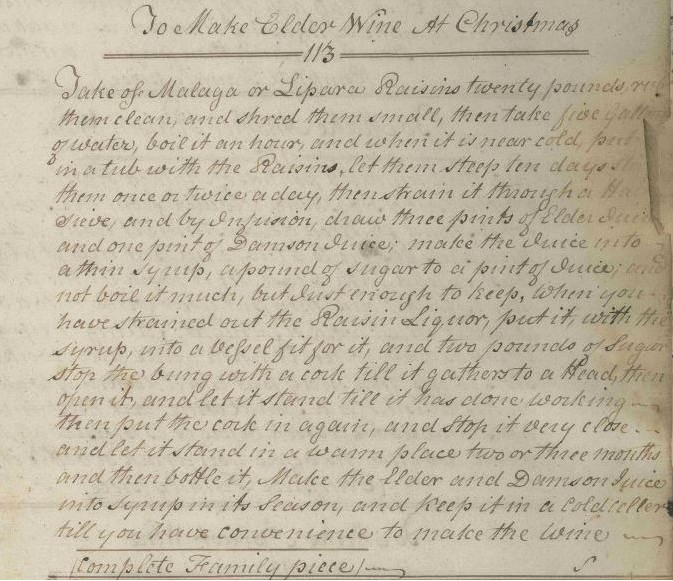 To Make Elder Wine At Christmas
113
Take of Malaga or Lipara Raisins twenty pounds, rub
them clean, and shred them small, then take five Gallons
of water, boil it an hour, and when it is near cold, put
in a tub with the Raisins, let them steep ten days
them once or twice a day, then strain it through a Hair
Sieve, and by Infusion, draw three pints of Elder Juice
and one pint of Damson Juice; make the Juice into
a thin syrup, a pound of sugar to a pint of Juice; and
not boil it much, but Just enough to keep. When you
have strained out the Raisin Liquor, put it, with the
syrup, into a vessel fit for it, and two pounds of Sugar
Stop the bung with a cork till it gathers to a Head, then
open it, and let it stand till it has done working
then put the cork in again, and Stop it very close
and let it stand in a warm place two or three months
and then bottle it, Make the Elder and Damson Juice
into Syrup in its Season, and keep it in a Cold celler
till you have convenience to make the Wine
(complete Family piece)